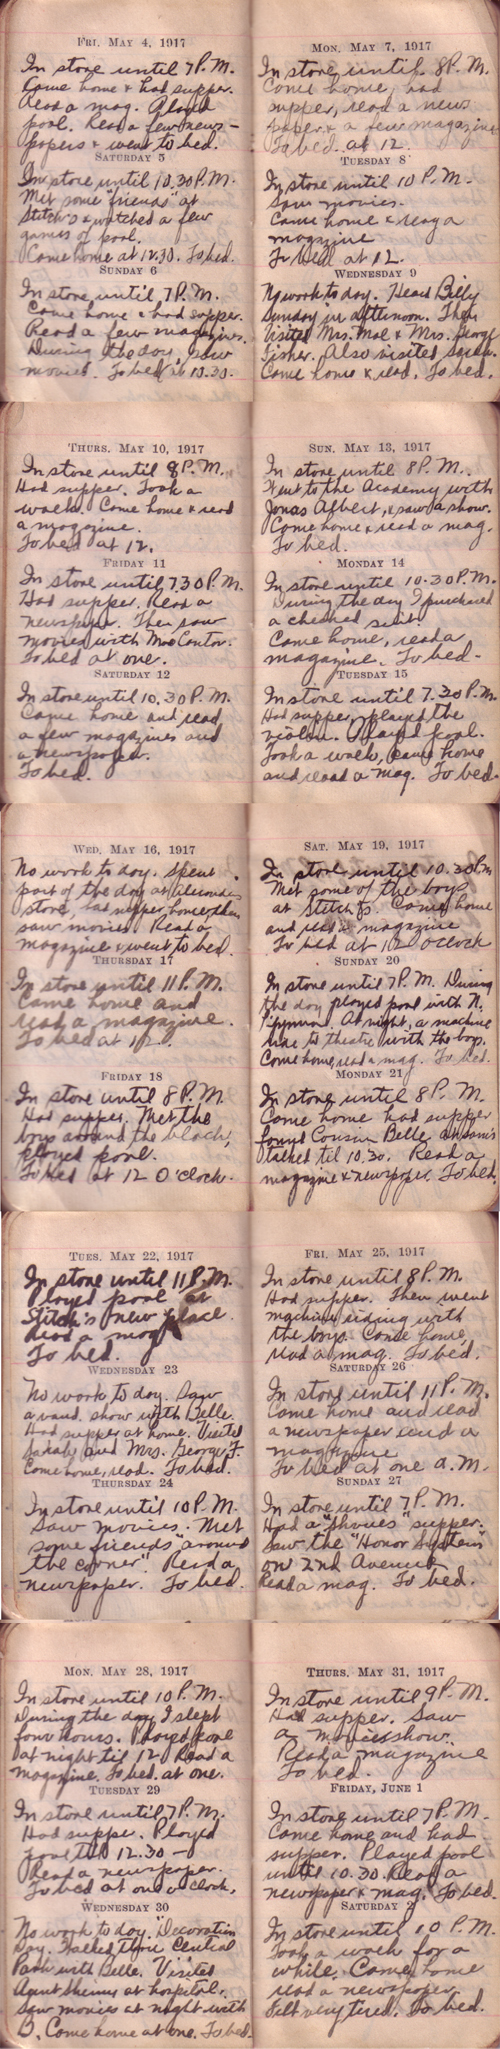 FRI. MAY 4, 1917
In store until 7 P. M.
Came home & had supper.
Read a mag. Played
pool. Read a few news-
papers & went to bed.
SATURDAY 5
In store until 10.30 P. M.
Met some friends at
Stitch's & watched a few
games of pool.
Came home at 12.30. To bed.
SUNDAY 6
In store until 7 P. M.
Came home & had supper.
Read a few magazines.
During the day, saw
movies. To bed at 10.30.
MON. MAY 7, 1917
In store until 8 P. M.
Came home, had
supper, read a news
paper & a few magazines
To bed at 12.
TUESDAY 8
In store until 10 P. M.
Saw movies.
Came home & read a
magazine
To bed at 12.
WEDNESDAY 9
No work to day. Heard Billy
Sunday in afternoon. Then
Visited Mrs. Mal & Mrs. George
Fisher. Also visited
Came home & read. To bed.
THURS. MAY 10, 1917
In store until 8 P. M.
Had supper. Took a
walk. Came home & read
a magazine.
To bed at 12.
FRIDAY 11
In store until 7.30 P. M.
Had supper. Read a
newspaper. Then saw
movies with Moe Cantor.
To bed at one.
SATURDAY 12
In store until 10.30 P. M.
Came home and read
a few magazines and
a newspaper.
To bed.
SUN. MAY 13, 1917
In store until 8 P. M.
Went to the Academy with
Jonas Albert, & saw a show.
Came home & read a mag.
To bed.
MONDAY 14
In store until 10.30 P. M.
During the day I purchased
a checked suit.
Came home, read a
magazine. To bed-
TUESDAY 15
In store until 7.30 P. M.
Had supper, played the
violin. Played pool.
Took a walk, came home
and read a mag. To bed.
WED. MAY 16, 1917
No work to day. Spent
part of the day at
store, had supper home, then
saw movies. Read a
magazine & went to bed.
THURSDAY 17
In store until 11 P. M.
Came home and
read a magazine.
To bed at 12.
FRIDAY 18
In store until 8 P. M.
Had supper. Met the
boys around the block,
played pool.
To bed at 12 O'clock.
SAT. MAY 19, 1917
In store until 10.30 P. M.
Met some of the boys
at Stitch's. Came home
and read a magazine
To bed at 12 O'clock
SUNDAY 20
In store until 7 P. M. During
the day played pool with N.
At night, a machine
ride to theatre with the boys.
Came home, read a mag. To bed.
MONDAY 21
In store until 8 P. M.
Came home had supper
found Cousin Belle
talked til 10.30. Read a
magazine & newspaper. To bed.
TUES. MAY 22, 1917
In store until 11 P. M.
Played pool at
Stitch's new place
Read a mag
To bed.
WEDNESDAY 23
No work to day. Saw
a vaud. show with Belle.
Had supper at home. Visited
and Mrs. George F.
Came home, read. To bed.
THURSDAY 24
In store until 10 P. M.
Saw movies. Met
some friends "around
the corner". Read a
newspaper. To bed.
FRI. MAY 25, 1917
In store until 8 P. M.
Had supper. Then went
machine riding with
the boys. Came home,
read a mag. To bed.
SATURDAY 26
In store until 11 P. M.
Came home and read
a newspaper and a
magazine
To bed at one a. M.
SUNDAY 27
In store until 7 P. M.
Had a supper.
Saw the "Honor System"
on 2nd Avenue
Read a mag. To bed.
MON. MAY 28, 1917
In store until 10 P. M.
During the day I slept
four hours. Played pool
at night til 12. Read a
magazine. To bed at one.
TUESDAY 29
In store until 7 P. M.
Had supper. Played
pool till 12.30 -
Read a newspaper.
To bed at one o'clock.
WEDNESDAY 30
No work to day. "Decoration
Day. Walked thru Central
Park with Belle. Visited
Aunt at hospital.
Saw movies at night with
B. Came home at one. To bed.
THURS. MAY 31, 1917
In store until 9 P. M.
Had supper. Saw
a movie show.
Read a magazine
To bed.
FRIDAY, JUNE 1
In store until 7 P. M.
Came home and had
supper. Played pool
until 10.30. Read a
newspaper & mag. To bed.
SATURDAY 2
In store until 10 P. M.
Took a walk for a
while. Came home
read a newspaper.
Felt very tired. To bed.